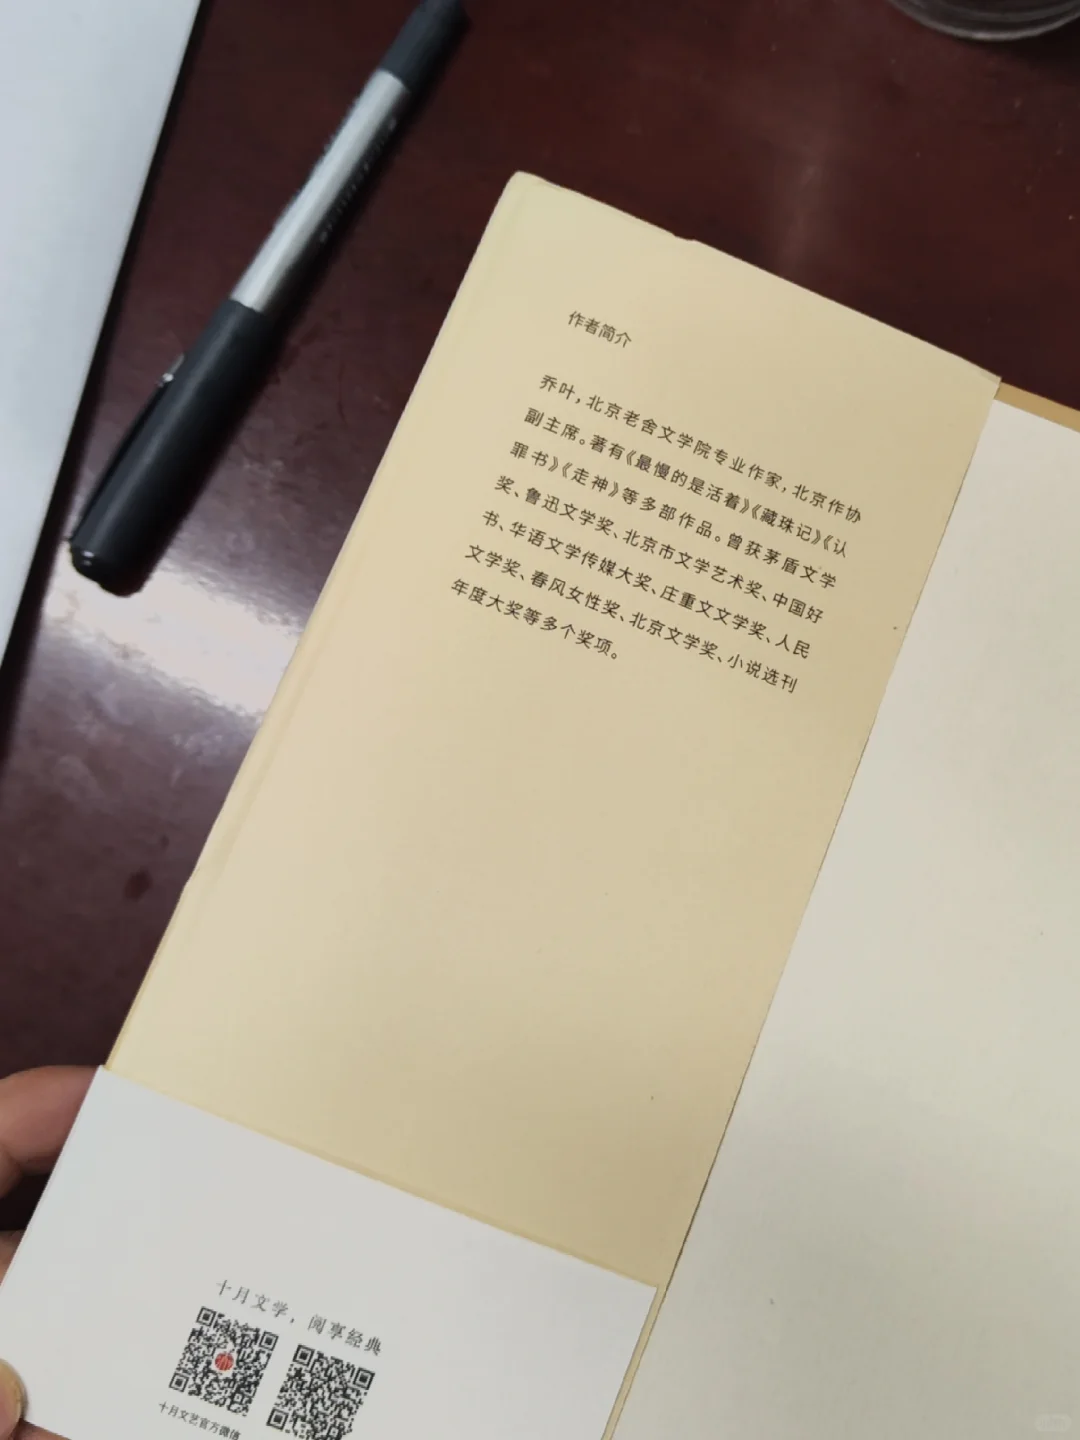 作者简介
乔叶，北京老舍文学院专业作家，北京作协
副主席。著有《最慢的是活着》《藏珠记》《认
罪书》《走神》等多部作品。曾获茅盾文学
奖、鲁迅文学奖、北京市文学艺术奖、中国好
书、华语文学传媒大奖、庄重文文学奖、人民
文学奖、春风女性奖、北京文学奖、小说选刊
年度大奖等多个奖项。
十月文学，阅享经典
十月文艺官方微信